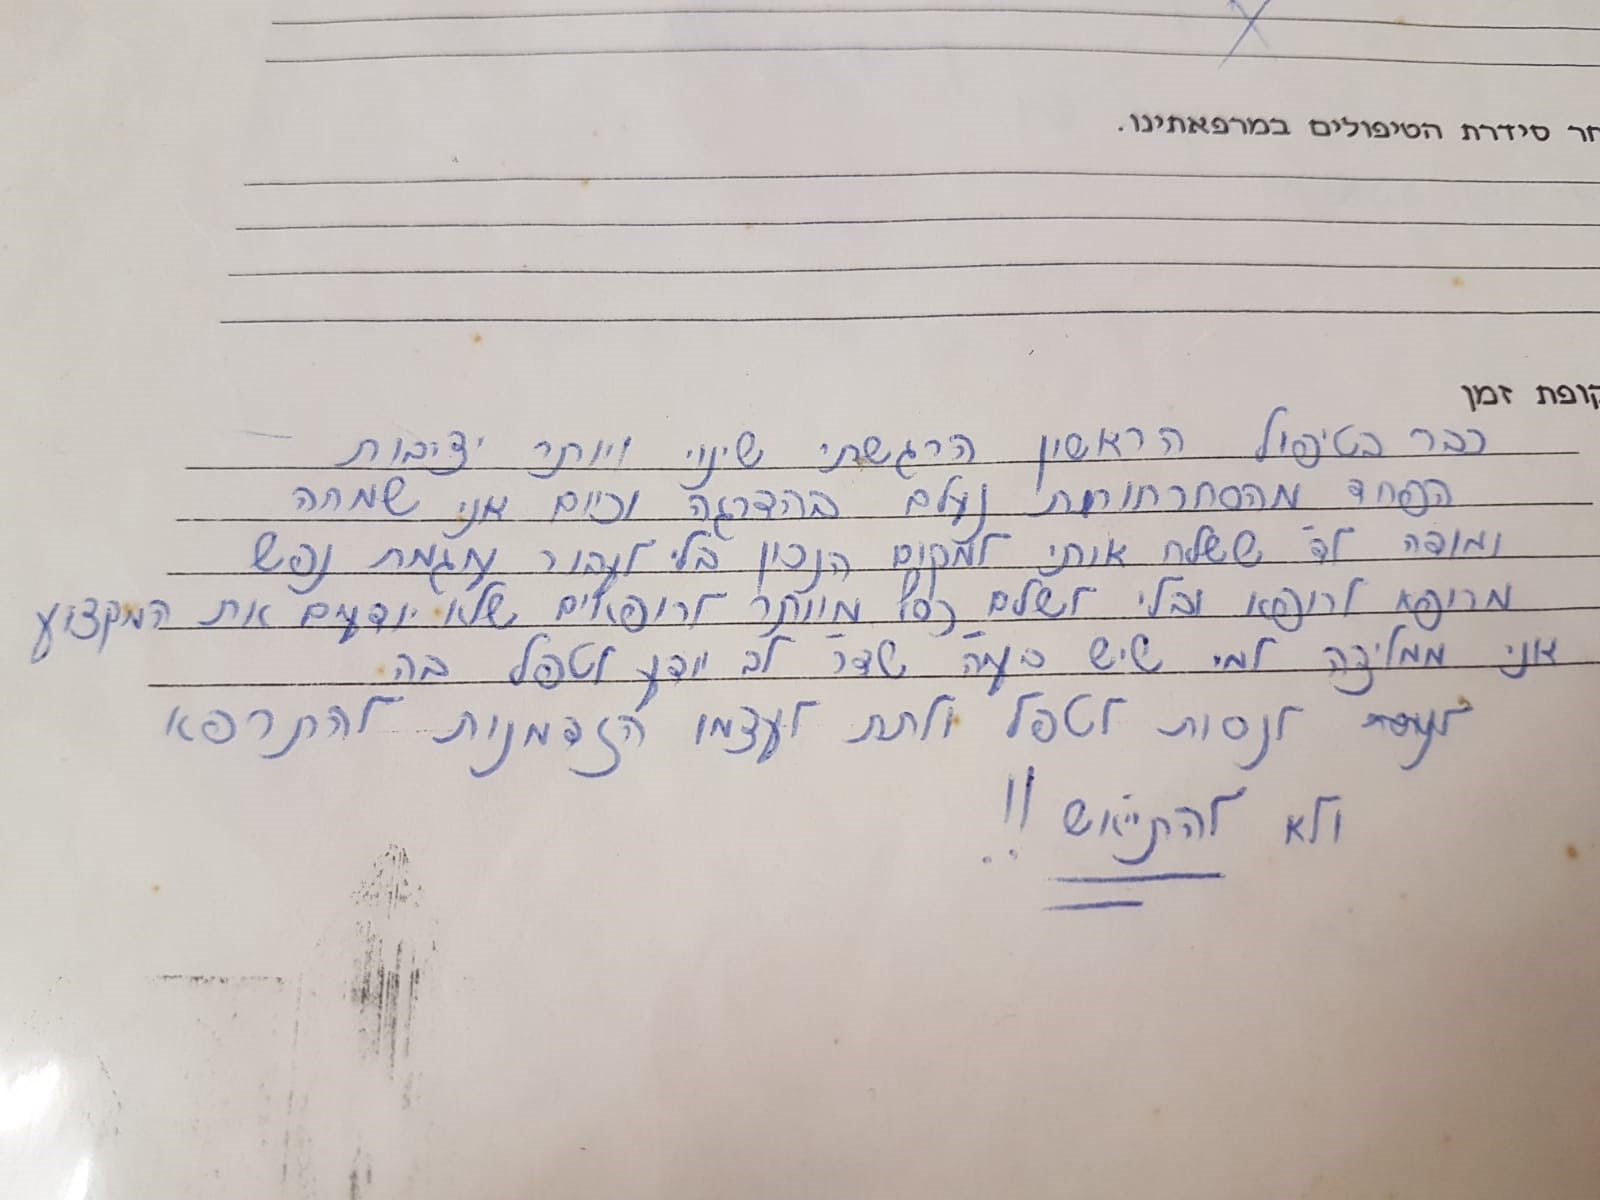 סידרת הטיפולים במרפאתינו.
זמן
כבר בטיפול הראשון הרגשתי שינוי ויותר יציבות
הפחד מהסחרחורות נעלם בהדרגה וכיום אני שמחה
ומודה לד״ר ששלח אותי למקום הנכון בלי לעבור עגמת נפש
מרופא לרופא ובלי לשלם כסף מיותר לרופאים שלא יודעים את המקצוע
אני ממליצה למי שיש בעיה שד״ר לב יודע לטפל בה
לנסות לטפל ולתת לעצמו הזדמנות להתרפא
ולא להתייאש !!